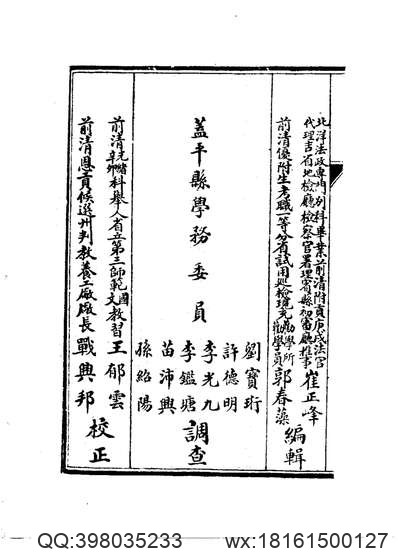 北洋法政專門別科畢業前清附貢庚戌法官
代理吉省地檢廳檢察官署理賓縣初審廳推事崔正峰
前清優附生考職一等分省試用巡檢現充勸學所勸學員郭春藻
編輯
蓋平縣學務委員
劉寶珩
許德明
李光九
李鑑塘
苗沛興
孫紹陽
調查
前清科舉人省立第三師範國文教習王郁雲
前清恩貢候選州判教養工廠廠長戰興邦
校正
QQ:398035233 wx:18161500127